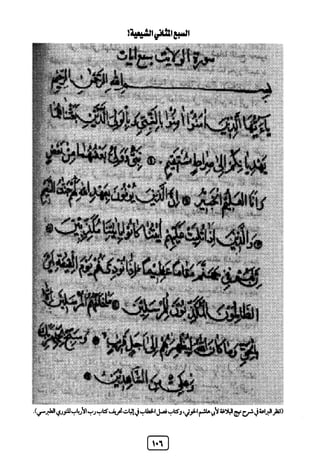 السبع المثاني الشيعية!
سورة الولاية سبع آيات
بسم الله الرحمن الرحيم
يا أيها الذين آمنوا آمنوا بالنبي وبالولي الذين بعثناهما
يهديانكم إلى صراط مستقيم نبي وولي بعضهما من بعض
وأنا العليم الخبير إن الذين يوفون بعهد الله لهم جنات النعيم
والذين إذا تليت عليهم آياتنا كانوا بآياتنا مكذبين
إن لهم في جهنم مقاما عظيما إذا نودي لهم يوم القيمة أين
الظالمون المكذبون للمرسلين ما خلقهم المرسلين إلا
بالحق وما كان الله ليظهرهم إلى أجل قريب وسبح بحمد ربك
وعلي من الشاهدين
(انظر البراعة في شرح نهج البلاغة لأبي هاشم الخوئي، وكتاب فصل الخطاب في إثبات تحريف كتاب رب الأرباب للنوري الطبرسي).
١٠٦